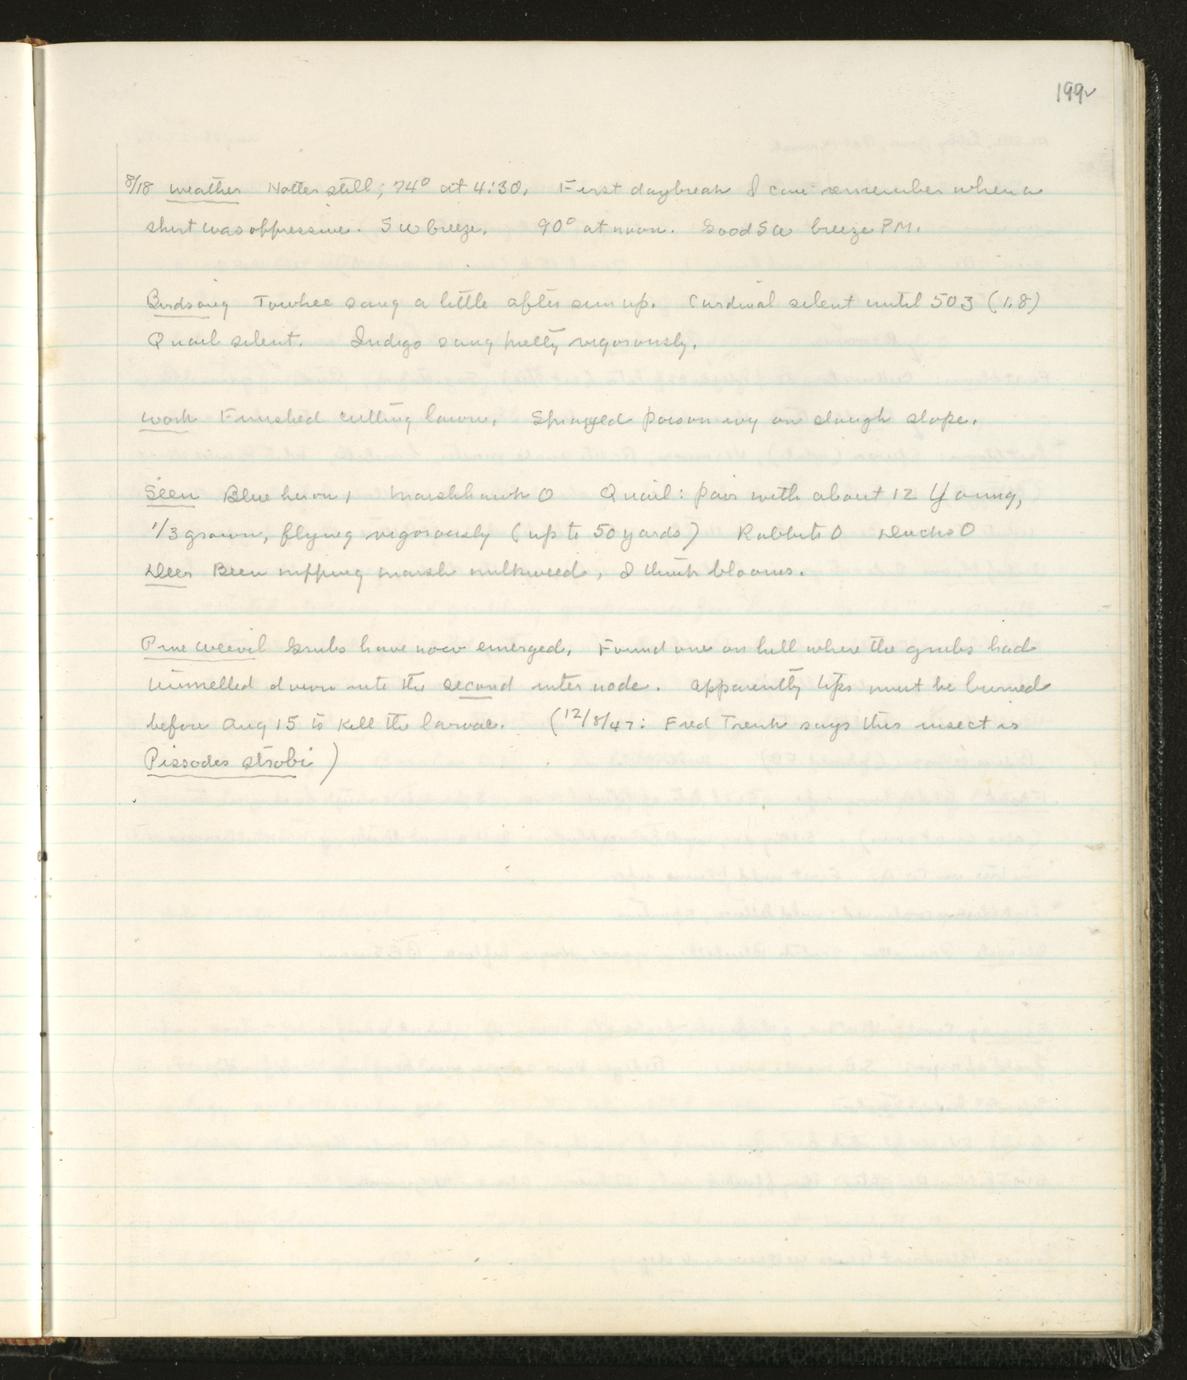 199
8/18 Weather Hotter still; 74° at 4:30. First daybreak I can remember when a
shirt was oppressive. SW breeze. 90° at noon. Good SW breeze PM.
Birdsong Towhee sang a little after sun up. Cardinal silent until 503 (1.8)
Quail silent. Indigo sang pretty vigorously.
Work Finished cutting lawn. Sprayed poison ivy on slough slope.
Seen Blue heron 1 Marshhawk 0 Quail: pair with about 12 young,
1/3 grown, flying vigorously (up to 50 yards) Rabbits 0 Ducks 0
Deer Been nipping marsh milkweed, I think blooms.
Pine Weevil Grubs have now emerged. Found one on hill where the grubs had
tunnelled down into the second internode. Apparently tips must be burned
before Aug 15 to kill the larvae. (12/8/47: Fred Trenk says this insect is
Pissodes strobi)